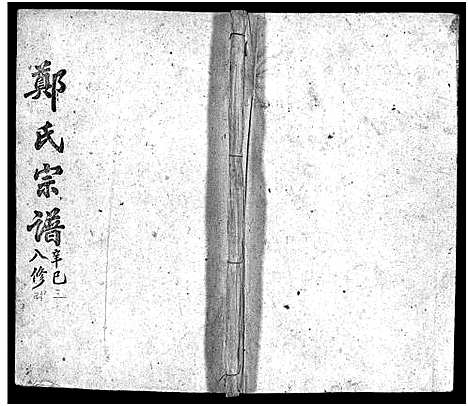 鄭氏宗譜
辛巳三
八修